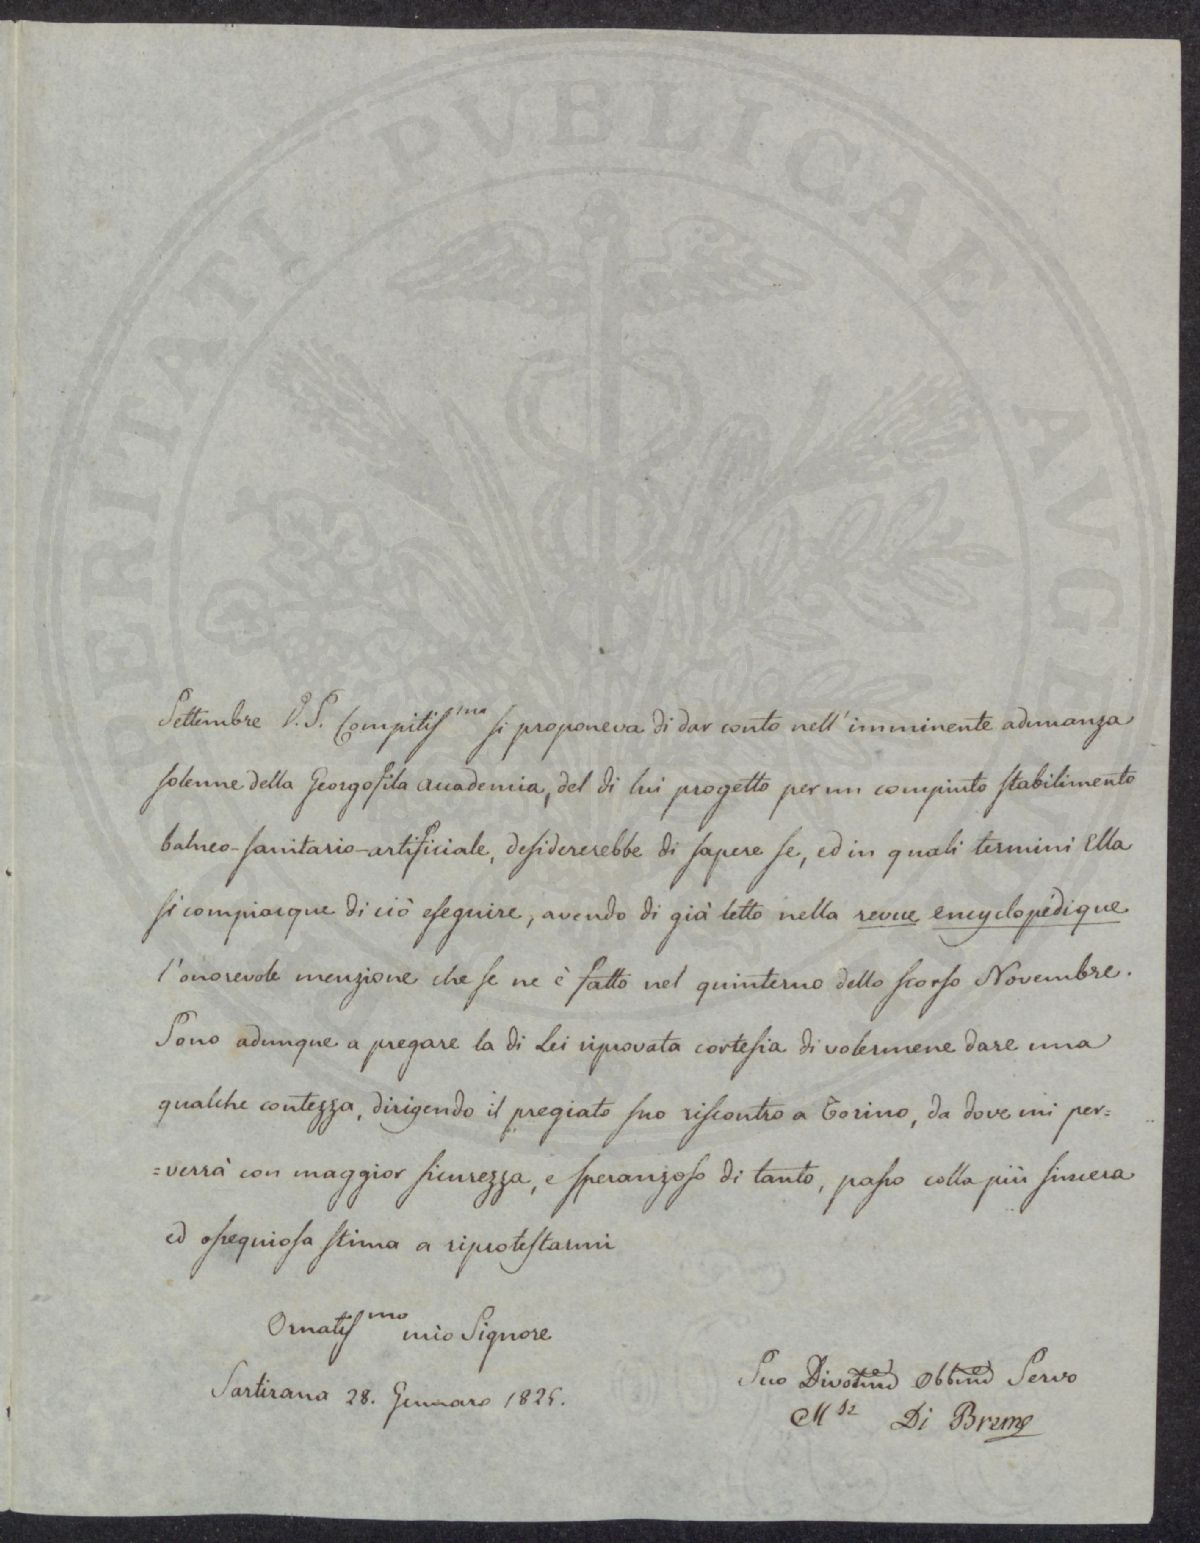 PROSPERITATI PVBLICAE AVGENDAE
Settembre V.S. Compitiss.ima si proponeva di dar conto nell'imminente adunanza
solenne della Georgofila Accademia, del di lui progetto per un compiuto stabilimento
balneo-sanitario-artificiale, desidererebbe di sapere se, ed in quali termini Ella
si compiacque di ciò eseguire, avendo di già letto nella revue encyclopédique
l'onorevole menzione che se ne è fatto nel quinterno dello scorso Novembre.
Sono adunque a pregare la di Lei riprovata cortesia di volermene dare una
qualche contezza, dirigendo il pregiato suo riscontro a Torino, da dove mi per=
=verrà con maggior sicurezza, e speranzoso di tanto, passo colla più sincera
ed ossequiosa stima a riprotestarmi
Ornatiss.mo mio Signore
Sartirana 28. Gennaro 1825.
Suo Divotmo Obbmo Servo
M.se Di Breme